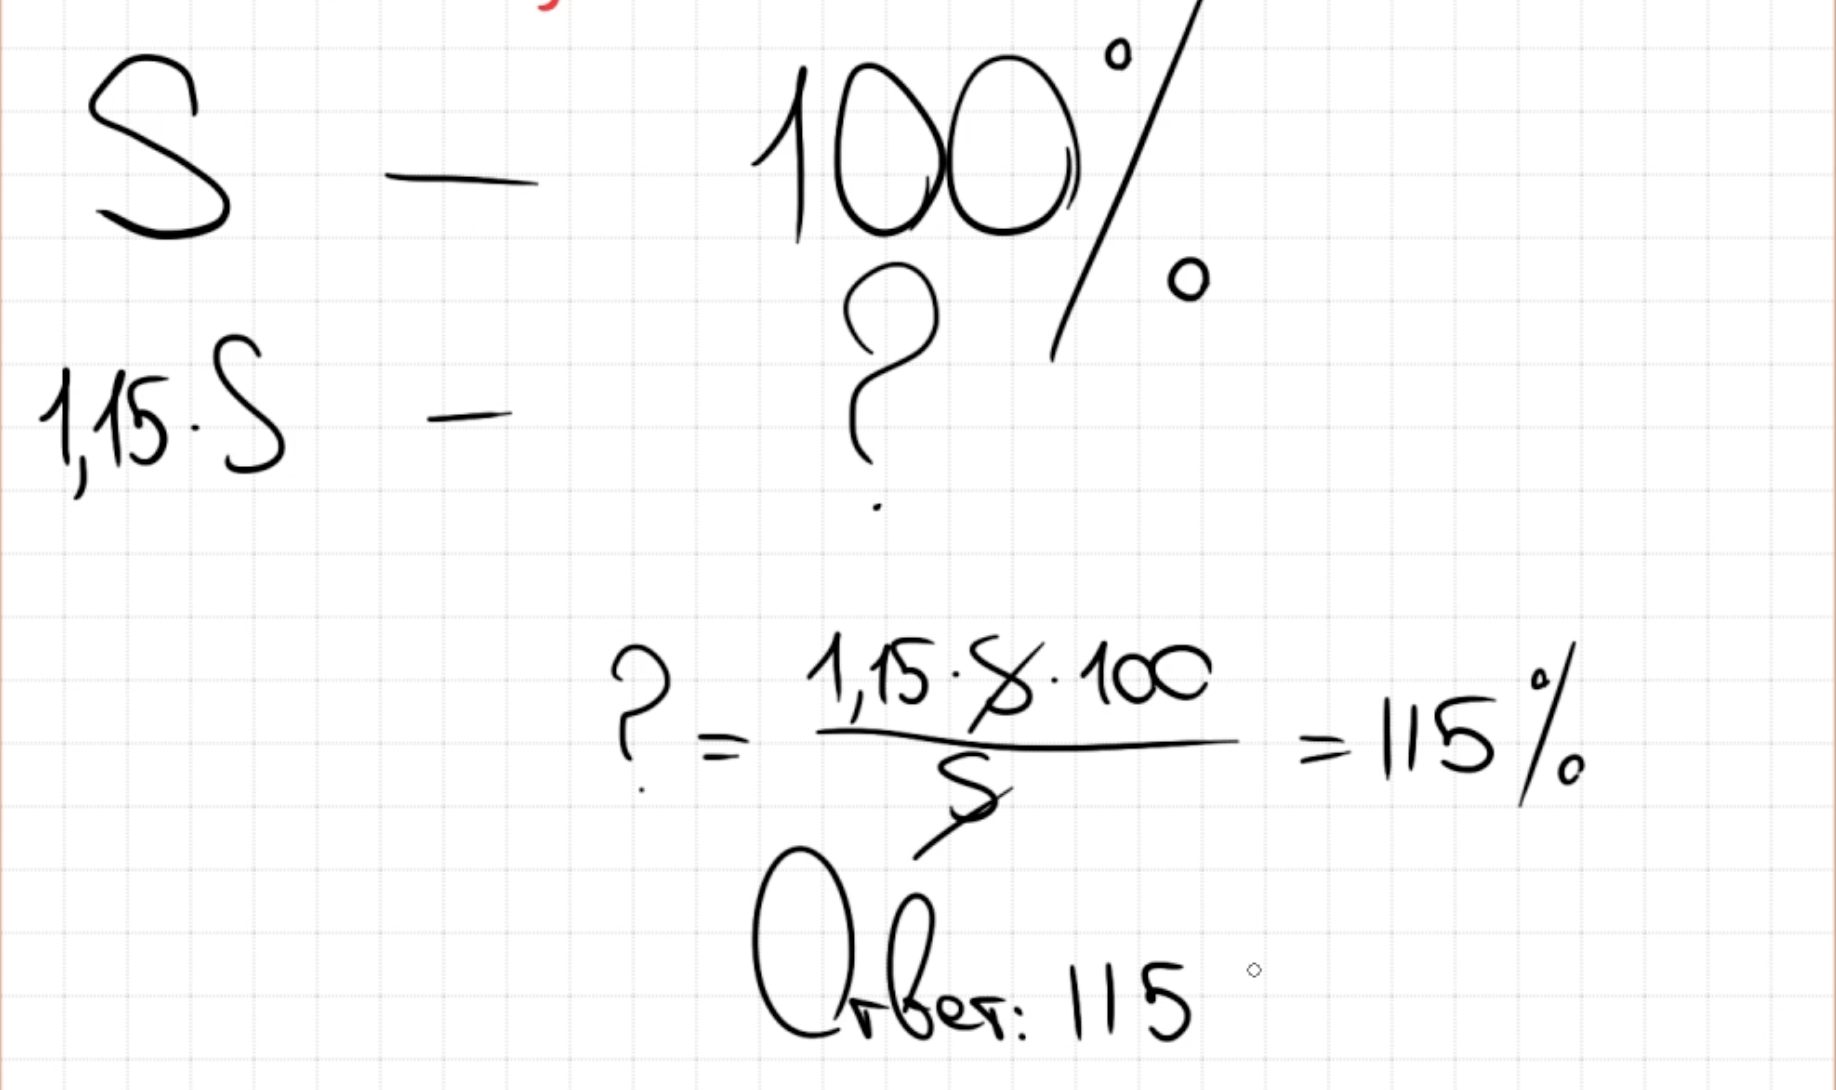 S — 100%
1,15·S — ?
? = 1,15·S·100 / S = 115%
Ответ: 115